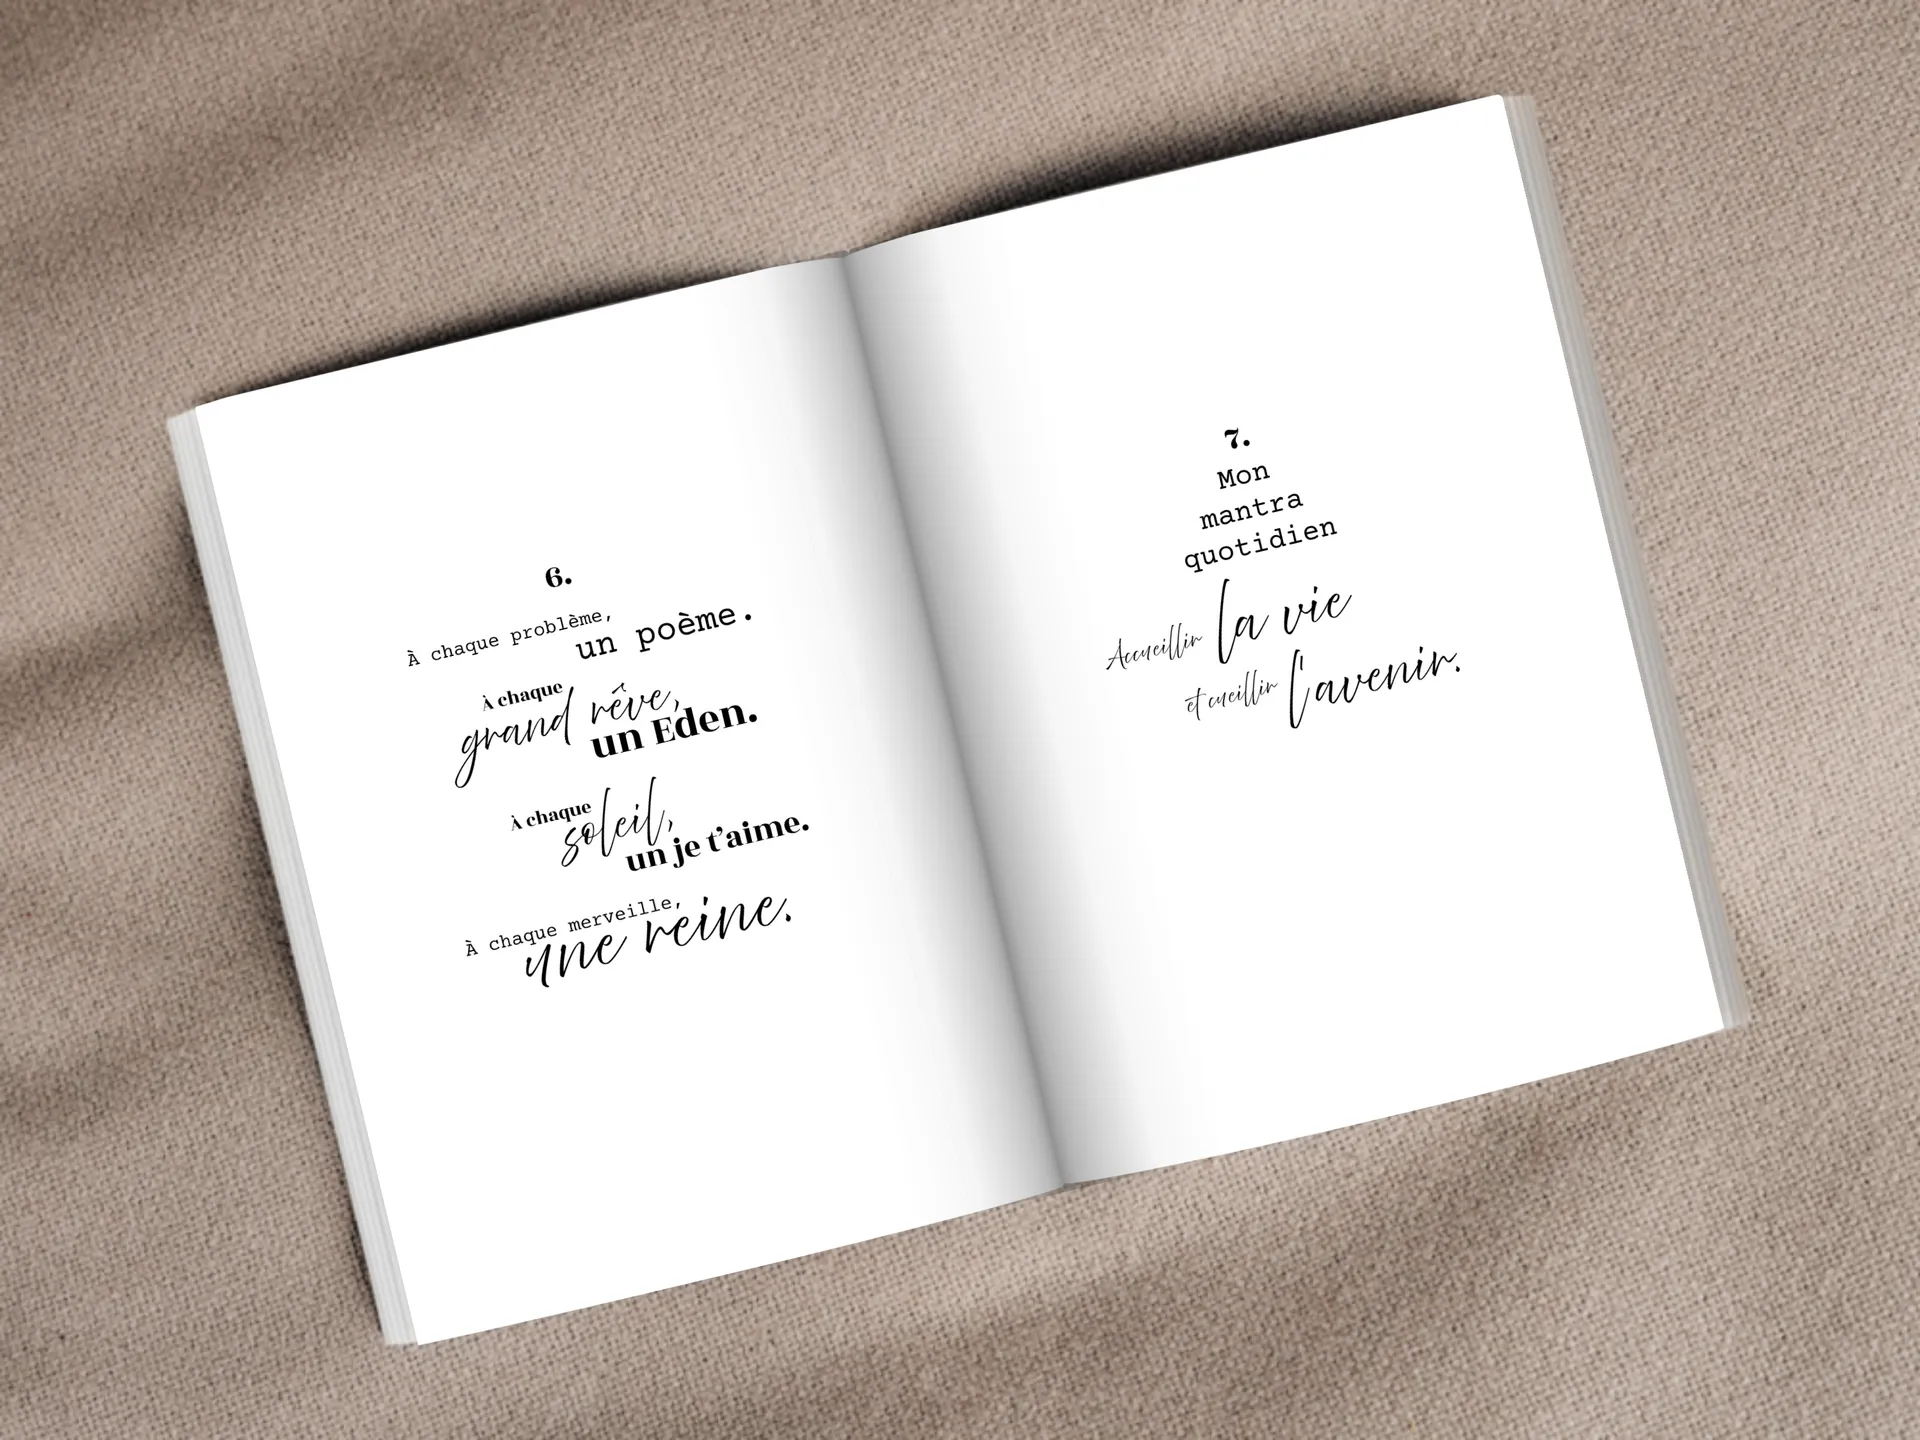 6.
À chaque problème,
un poème.
À chaque
grand rêve,
un Eden.
À chaque
soleil,
un je t'aime.
À chaque merveille,
une reine.
7.
Mon
mantra
quotidien
Accueillir la vie
et cueillir l'avenir.